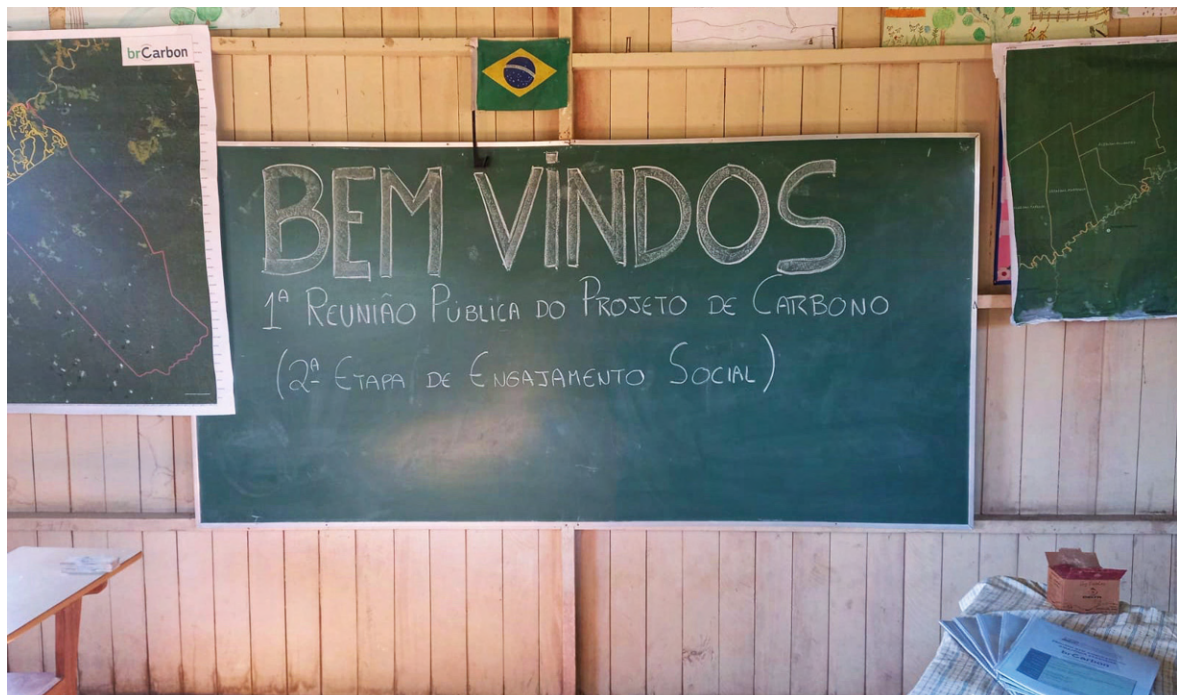 brCarbon
BEM VINDOS
1ª REUNIÃO PÚBLICA DO PROJETO DE CARBONO
(2ª ETAPA DE ENGAJAMENTO SOCIAL)
brCarbon